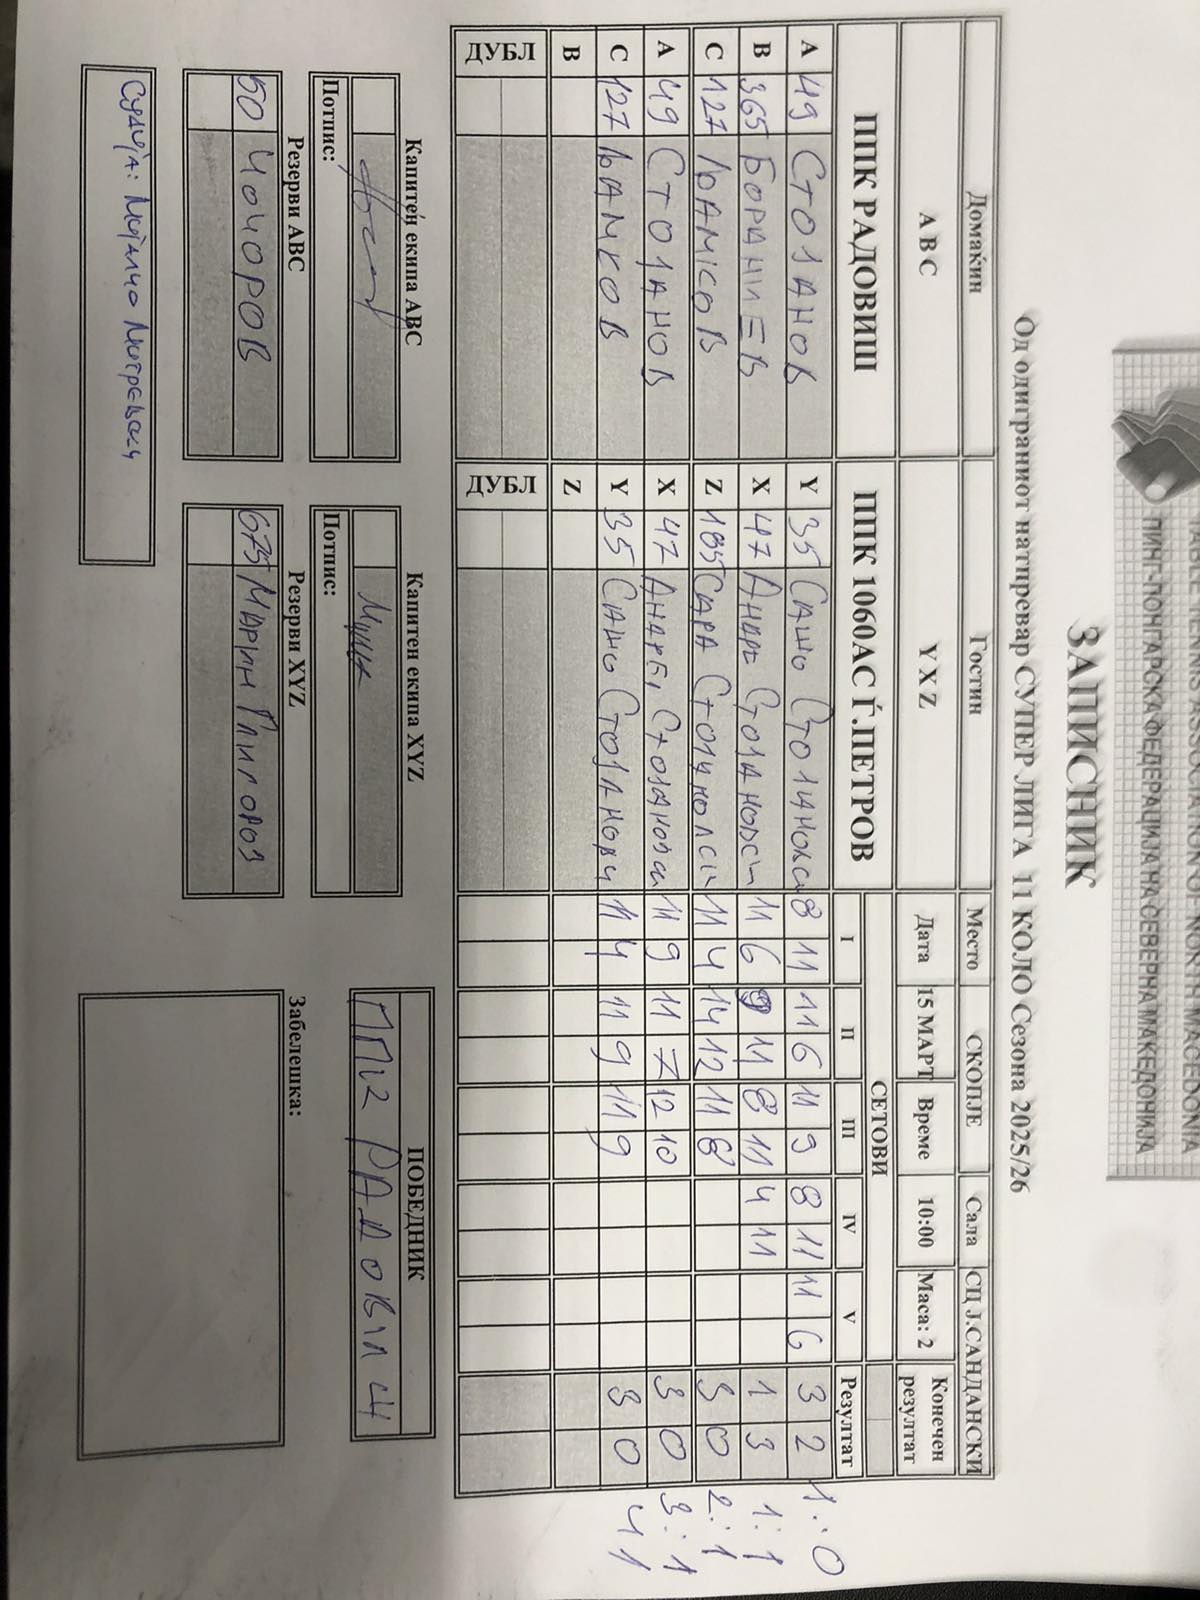 TABLE TENNIS ASSOCIATION OF NORTH MACEDONIA
ПИНГ-ПОНГАРСКА ФЕДЕРАЦИЈА НА СЕВЕРНА МАКЕДОНИЈА
ЗАПИСНИК
Од одиграниот натпревар СУПЕР ЛИГА 11 КОЛО Сезона 2025/26
Домаќин Гостин Место СКОПЈЕ Сала СЦ Ј.САНДАНСКИ
A B C Y X Z Дата 15 МАРТ Време 10:00 Маса: 2 Конечен резултат
ППК РАДОВИШ ППК 1060АС Ѓ.ПЕТРОВ СЕТОВИ
I II III IV V Резултат
A 49 СТОЈАНОВ Y 35 Сашо 8 11 11 6 11 9 8 11 11 6 3 2 1:0
B 365 X 47 11 6 9 11 8 11 4 11 1 3 1:1
C 127 ЉАМКОВ Z 185 САРА 11 4 14 12 11 8 3 0 2:1
A 49 СТОЈАНОВ X 47 11 9 11 7 12 10 3 0 3:1
C 127 ЉАМКОВ Y 35 Сашо 11 4 11 9 11 9 3 0 4 1
B Z
ДУБЛ ДУБЛ
Капитен екипа ABC Капитен екипа XYZ ПОБЕДНИК
ППК РАДОВИШ
Потпис: Потпис:
Резерви ABC Резерви XYZ Забелешка:
50 ЧОЧОРОВ 675 Марин Глигоров
Судија: